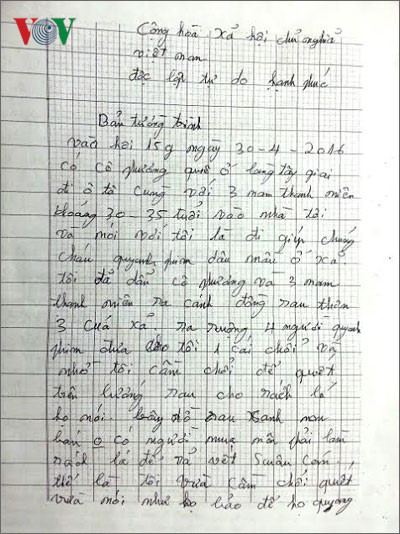 VOV
Cộng hoà xả hội chủ nghĩa
việt nam
độc lập tự do hạnh phúc
Bản tường trình
vào hồi 15g ngày 30-4-2016
có cô phương quê ở làng tây giai
đi ô tô cùng với 3 nam thanh niên
khoảng 30-35 tuổi vào nhà tôi
và nói với tôi là đi giúp chúng
cháu quyanh phim dâu mầu ở xả
tôi đả dẩn cô phương và 3 nam
thanh niên ra cánh đồng rau thôn
3 của xả ra ruộng 4 người quyanh
phim đưa cho tôi 1 cái chổi và
nhờ tôi cầm chổi để quét
trên luống rau cho rách lá
họ nói bây giờ rau xanh non
bán o có người mua nên phải làm
rách lá để vả vết sâu cắn
thế là tôi vừa cầm chổi quét
vừa nói như họ bảo để họ quyang